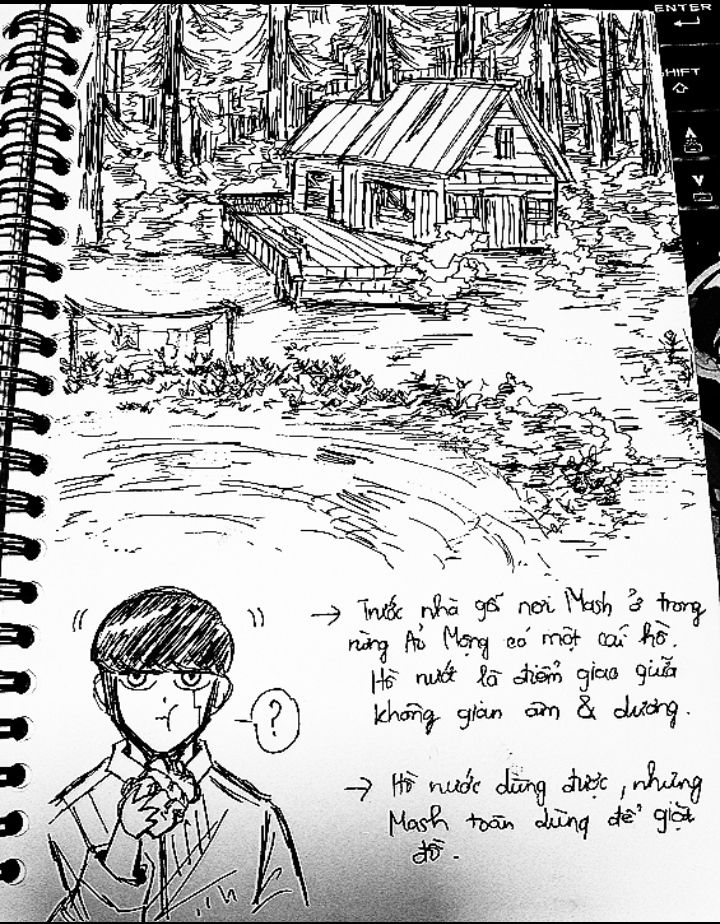 ENTER
SHIFT
?
→ Trước nhà gỗ nơi Mash ở trong
rừng Ảo Mộng có một cái hồ.
Hồ nước là điểm giao giữa
không gian âm & dương.
→ Hồ nước dùng được, nhưng
Mash toàn dùng để giặt
đồ.